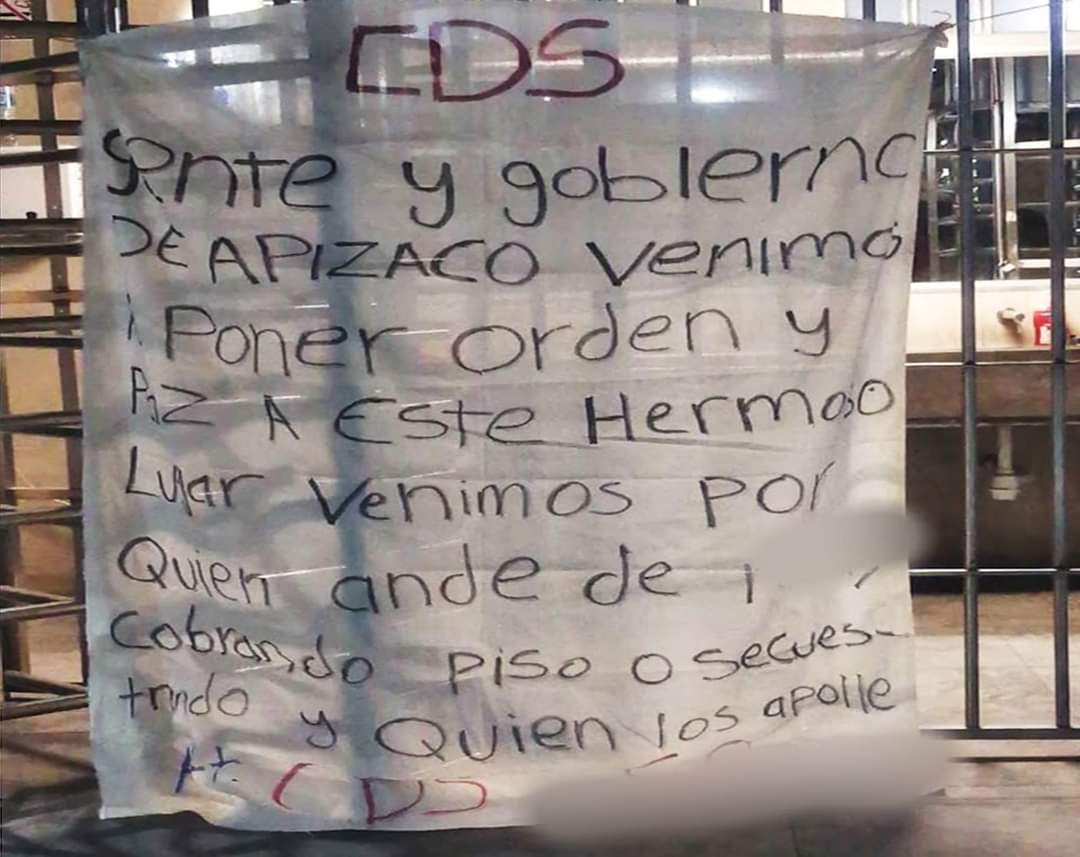 CDS
Gente y gobierno
DE APIZACO Venimo
Poner orden y
PAZ A Este Hermoso
Lugar Venimos por
Quien ande de
Cobrando piso o secues-
trando y Quien los apolle
At. CDS